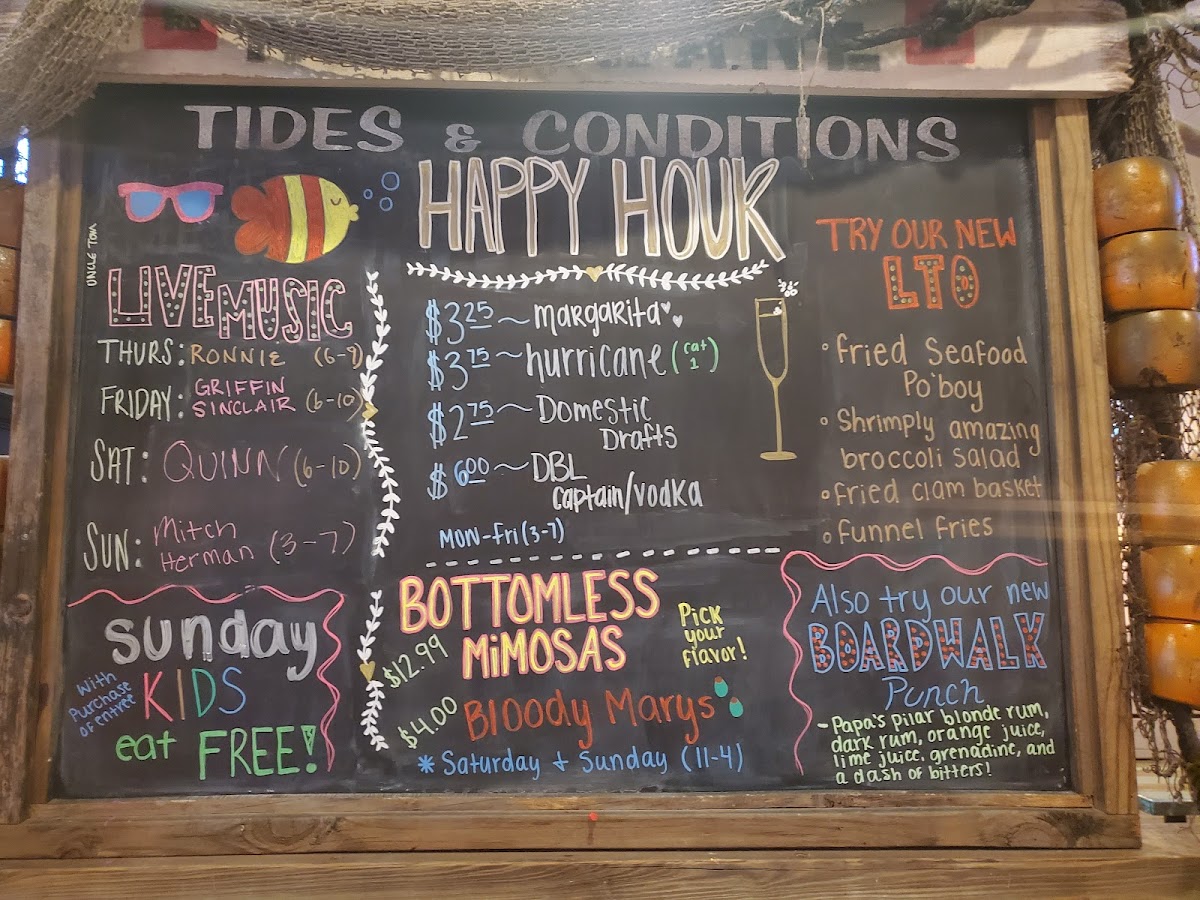 TIDES & CONDITIONS
UNCLE TOM
LIVE MUSIC
THURS: RONNIE (6-9)
FRIDAY: GRIFFIN
SINCLAIR (6-10)
SAT: QUINN (6-10)
SUN: Mitch
Herman (3-7)
Sunday
With
Purchase
of entrée
KIDS
eat FREE!
HAPPY HOUR
$3.25 ~ margarita
$3.75 ~ hurricane (cat 1)
$2.75 ~ Domestic
Drafts
$6.00 ~ DBL
captain/vodka
MON-Fri (3-7)
BOTTOMLESS
MiMOSAS
$12.99
Pick
your
flavor!
$4.00
Bloody Marys
* Saturday + Sunday (11-4)
TRY OUR NEW
LTO
° Fried Seafood
Po'boy
° Shrimply amazing
broccoli salad
° Fried clam basket
° Funnel Fries
Also try our new
BOARDWALK
Punch
- Papa's Pilar blonde rum,
dark rum, orange juice,
lime juice, grenadine, and
a dash of bitters!